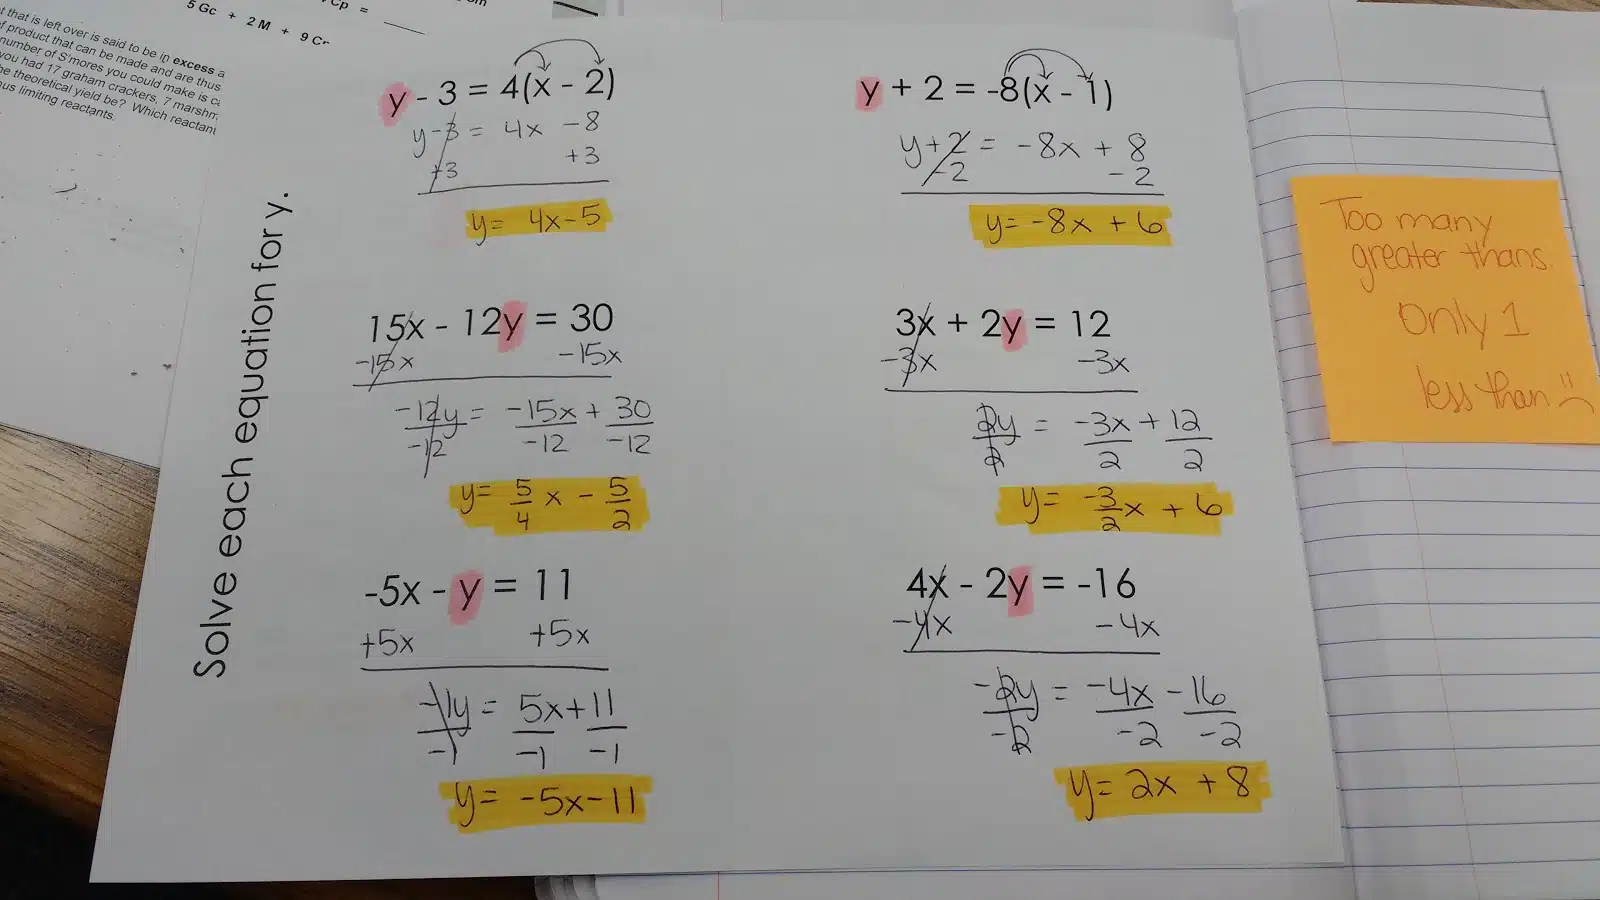 5 Gc + 2 M + 9 Cr
Cp = ____
t that is left over is said to be in excess a
f product that can be made and are thus
number of S'mores you could make is ca
you had 17 graham crackers, 7 marshm
he theoretical yield be? Which reactant
us limiting reactants.
Solve each equation for y.
y - 3 = 4(x - 2)
y-3 = 4x - 8
+3 +3
y= 4x-5
y + 2 = -8(x - 1)
y+2 = -8x + 8
-2 -2
y= -8x + 6
15x - 12y = 30
-15x -15x
-12y = -15x + 30
-12 -12 -12
y= 5/4 x - 5/2
3x + 2y = 12
-3x -3x
2y = -3x + 12
2 2 2
y= -3/2 x + 6
-5x - y = 11
+5x +5x
-1y = 5x+11
-1 -1 -1
y= -5x-11
4x - 2y = -16
-4x -4x
-2y = -4x - 16
-2 -2 -2
y= 2x + 8
Too many
greater thans.
Only 1
less than :(